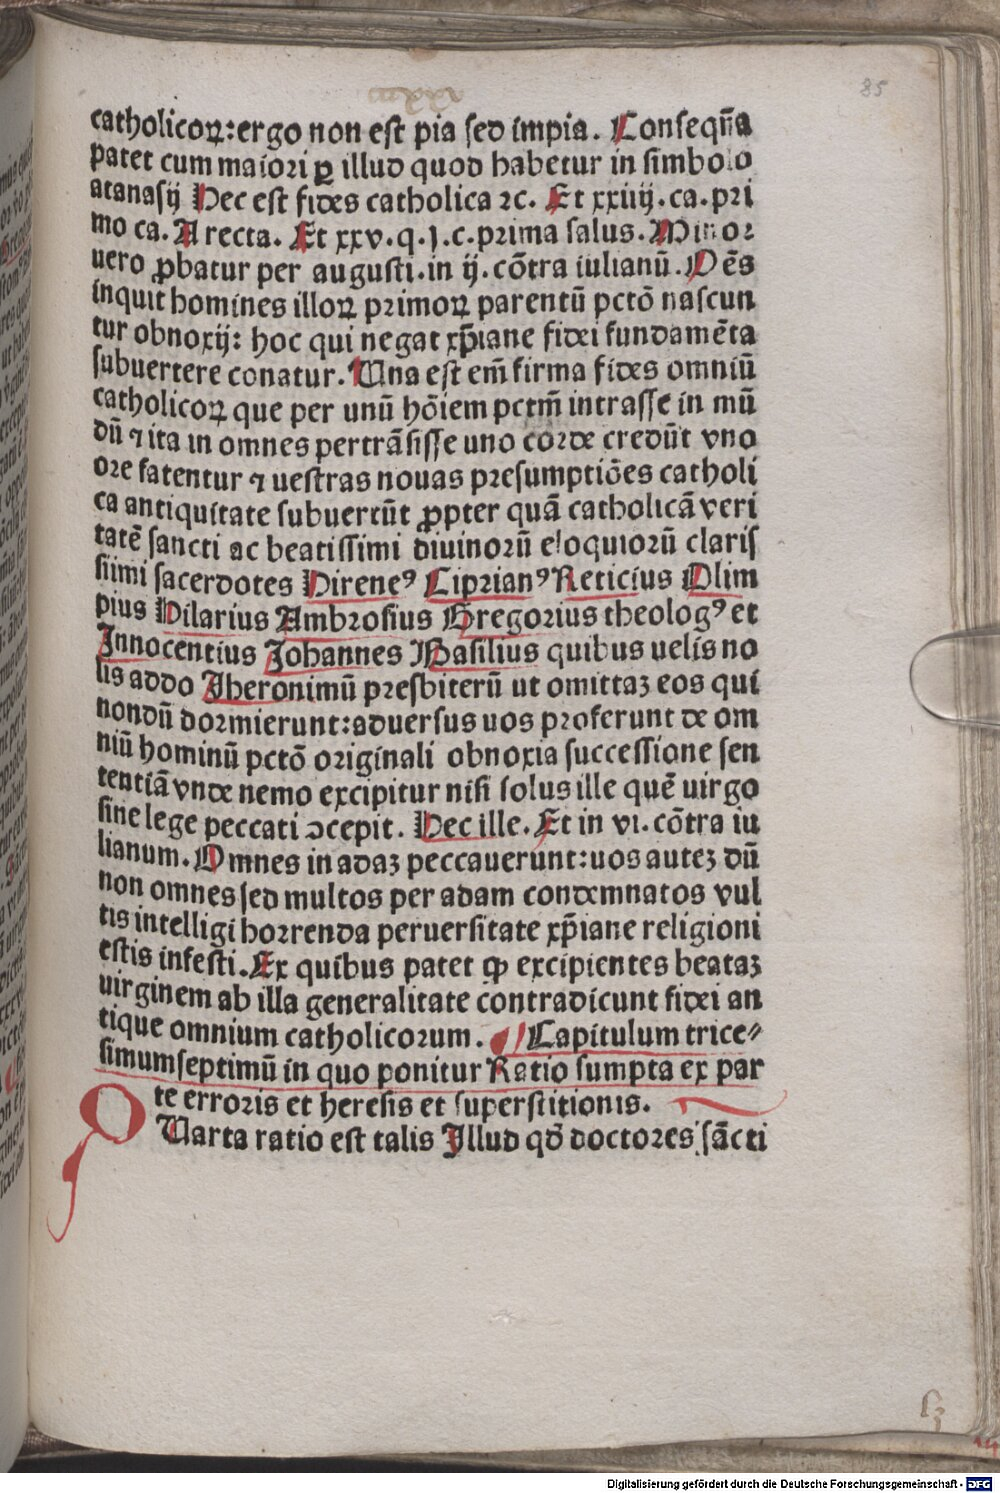 85
catholicoꝝ: ergo non est pia sed impia. Conseqn̄a
patet cum maiori ꝑ illud quod habetur in simbolo
atanasij Hec est fides catholica ⁊c. Et xxiiij. ca. pri
mo ca. A recta. Et xxv. q. j. c. prima salus. Minor
uero ꝓbatur per augusti. in ij. cōtra iulianū. Oēs
inquit homines illoꝝ primoꝝ parentū pctō nascun
tur obnoxij: hoc qui negat xp̄iane fidei fundamēta
subuertere conatur. Una est em̄ firma fides omniū
catholicoꝝ que per unū hōiem pctm̄ intrasse in mū
dū ⁊ ita in omnes pertrāsisse uno corde credūt vno
ore fatentur ⁊ uestras nouas presumptiōes catholi
ca antiquitate subuertūt ꝓpter quā catholicā veri
tatē sancti ac beatissimi diuinorū eloquiorū claris
siimi sacerdotes Hireneꝰ Ciprianꝰ Reticius Olim
pius Hilarius Ambrosius Gregorius theologꝰ et
Innocentius Johannes Basilius quibus uelis no
lis addo Iheronimū presbiterū ut omittaꝫ eos qui
nondū dormierunt: aduersus uos proferunt de om
niū hominū pctō originali obnoxia successione sen
tentiā vnde nemo excipitur nisi solus ille quē uirgo
sine lege peccati ↄcepit. Hec ille. Et in vi. cōtra iu
lianum. Omnes in adaꝫ peccauerunt: uos auteꝫ dū
non omnes sed multos per adam condemnatos vul
tis intelligi horrenda peruersitate xp̄iane religioni
estis infesti. Ex quibus patet ꝙ excipientes beataꝫ
uirginem ab illa generalitate contradicunt fidei an
tique omnium catholicorum. Capitulum trice⸗
simumseptimū in quo ponitur Ratio sumpta ex par
te erroris et heresis et superstitionis.
Q Uarta ratio est talis Illud qd̄ doctores sācti
Digitalisierung gefördert durch die Deutsche Forschungsgemeinschaft - DFG